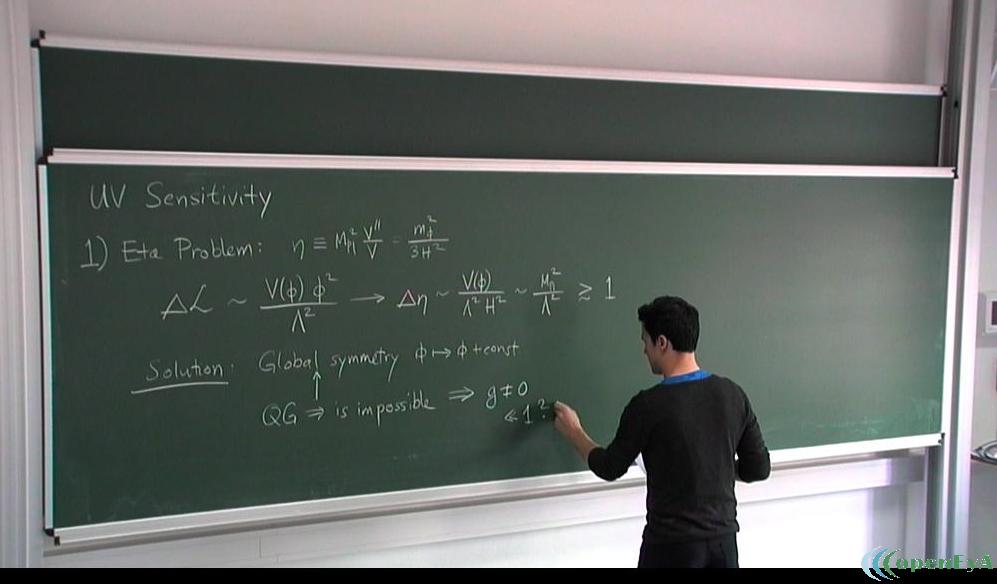 UV Sensitivity
1) Eta Problem: η ≡ M²Pl V''/V = m²ϕ/3H²
Δℒ ~ V(ϕ) ϕ²/Λ² → Δη ~ V(ϕ)/Λ² H² ~ M²Pl/Λ² ≳ 1
Solution: Global symmetry ϕ ↦ ϕ + const
↑
QG ⇒ is impossible ⇒ g ≠ 0
≪ 1 ?
openEyA